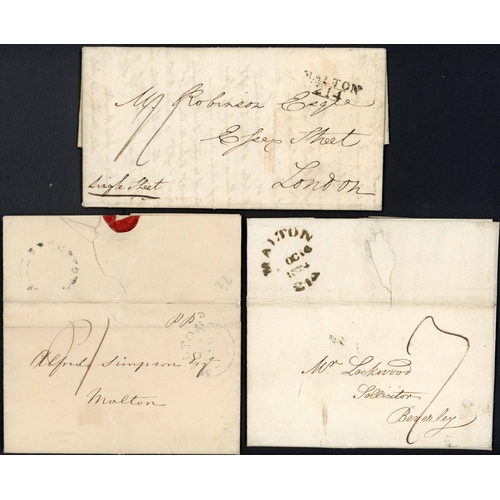 MALTON
214
Wm Robinson Esqre
11
Essex Street
Single Sheet
London
PPd
1
Alfred Simpson Esqr
Malton
MALTON
OC
7
Mr Lockwood
Sollicitor
Beverley